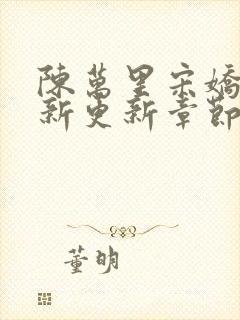 陳萬里宋嬌
新更新章節
董明